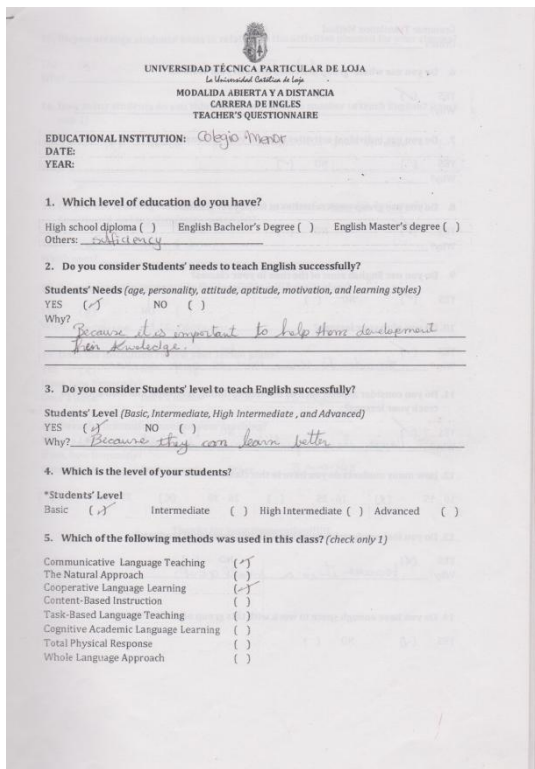 UNIVERSIDAD TÉCNICA PARTICULAR DE LOJA
La Universidad Católica de Loja
MODALIDA ABIERTA Y A DISTANCIA
CARRERA DE INGLES
TEACHER'S QUESTIONNAIRE
EDUCATIONAL INSTITUTION: Colegio Menor
DATE:
YEAR:
1. Which level of education do you have?
High school diploma ( ) English Bachelor's Degree ( ) English Master's degree ( )
Others: sufficiency
2. Do you consider Students' needs to teach English successfully?
Students' Needs (age, personality, attitude, aptitude, motivation, and learning styles)
YES (✓) NO ( )
Why?
Because it is important to help them development
their knwoledge.
3. Do you consider Students' level to teach English successfully?
Students' Level (Basic, Intermediate, High Intermediate , and Advanced)
YES (✓) NO ( )
Why? Because they can learn better
4. Which is the level of your students?
*Students' Level
Basic (✓) Intermediate ( ) High Intermediate ( ) Advanced ( )
5. Which of the following methods was used in this class? (check only 1)
Communicative Language Teaching (✓)
The Natural Approach ( )
Cooperative Language Learning (✓)
Content-Based Instruction ( )
Task-Based Language Teaching ( )
Cognitive Academic Language Learning ( )
Total Physical Response ( )
Whole Language Approach ( )